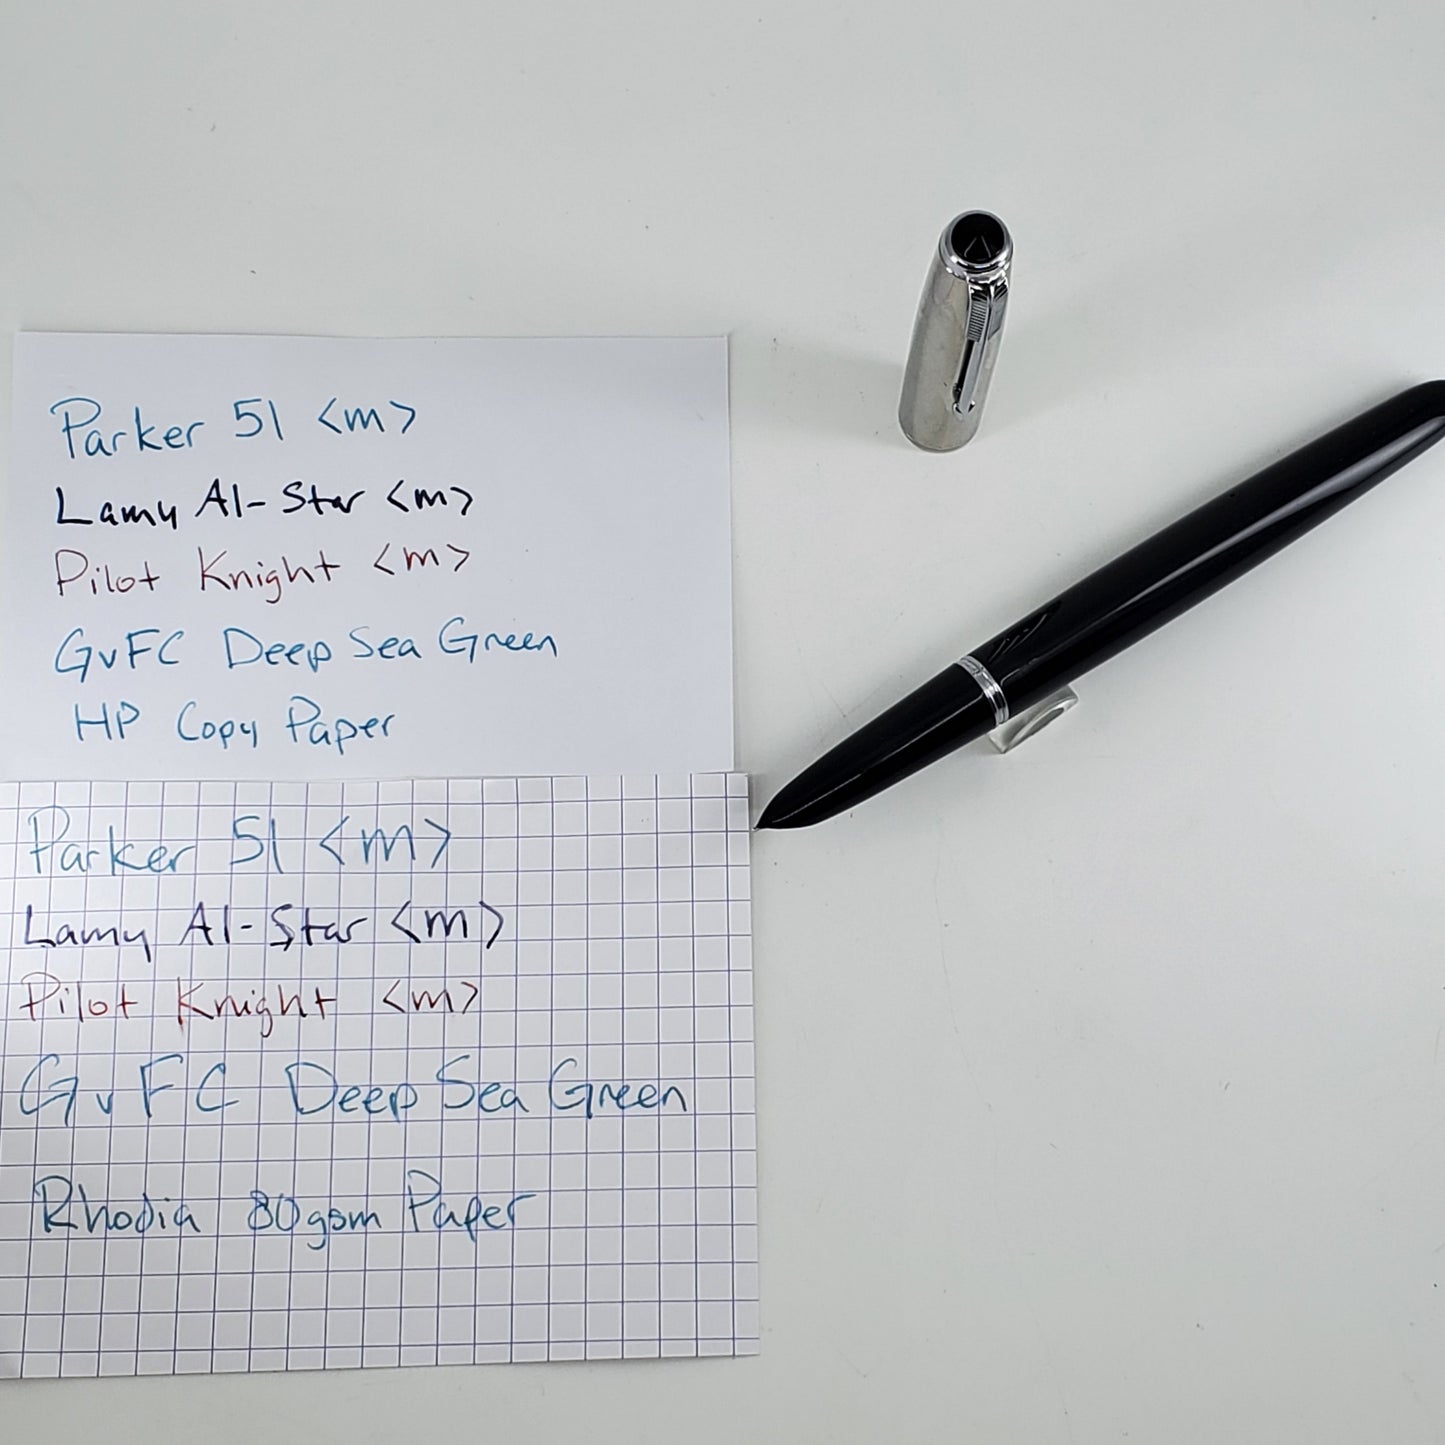 Parker 51 <m>
Lamy Al-Star <m>
Pilot Knight <m>
GvFC Deep Sea Green
HP Copy Paper
Parker 51 <m>
Lamy Al-Star <m>
Pilot Knight <m>
GvFC Deep Sea Green
Rhodia 80gsm Paper